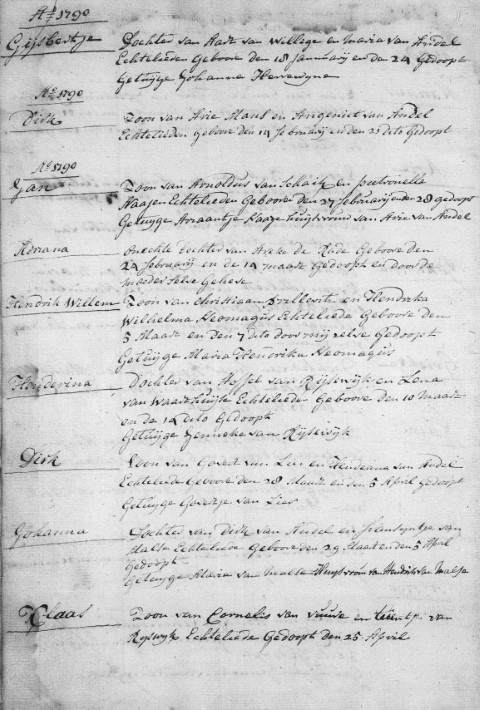 Aº 1790
Gijsbertje Dochter van Aart van Willege en Maria van Andel
Echtelieden Geboore den 18 Januarij en de 24 Gedoopt
Getuijge Johanna
Aº 1790
Dirk Zoon van Arie Mans en Angeniet van Andel
Echtelieden geboore den 14 Februarij en den 25 dito Gedoopt
Aº 1790
Jan Zoon van Arnoldus van Schaik en Peetronella
Haasen Echtelieden Geboore den 27 februarij en de 28 gedoopt
Getuijge Ariaantje Huijsvrouw van Arie van Andel
Adriana onechte Dochter van de Rade Geboore den
24 februarij en de 14 maart Gedoopt en door de
moeder selve Geheve
Hendrik Willem Zoon van Christiaan en Hendrika
Wilhelma Neomagus Echteliede Geboore den
5 Maart en den 7 dito door mij selve Gedoopt
Getuijge Maria Hendrika Neomagus
Dochter van van Rijswijk en Lena
van Echteliede Geboore den 10 maart
en de 14 dito Gedoopt
Getuijge Jenneke van Rijswijk
Dirk Zoon van Govert van Lier en van Andel
Echteliede Geboore den 28 Maart en den 5 April gedoopt
Getuijge Geertje van Lier
Johanna Dochter van Dirk van Andel en van
Malse Echtelieden Geboore den 29 Maart en den 5 April
Gedoopt
Getuijge Maria van Malse Huijsvrouw van Hendrik van Malse
Klaas Zoon van Cornelis van Vuure en van
Rijswijk Echteliede Gedoopt den 25 April